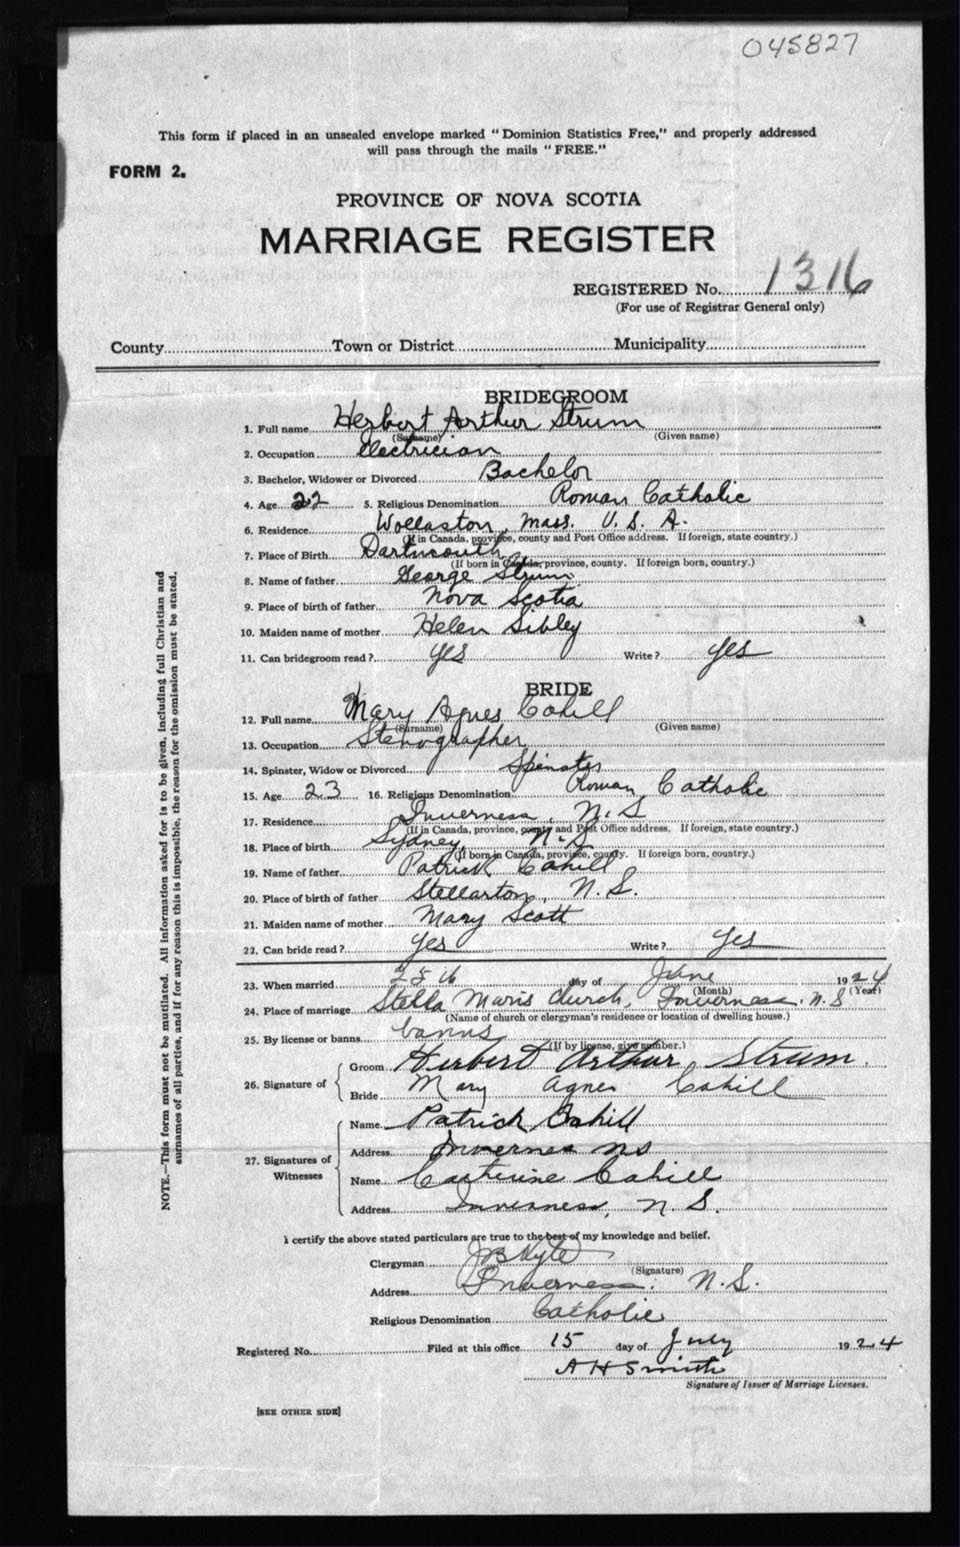 045827
This form if placed in an unsealed envelope marked "Dominion Statistics Free," and properly addressed
will pass through the mails "FREE."
FORM 2.
PROVINCE OF NOVA SCOTIA
MARRIAGE REGISTER
REGISTERED No. 1316
(For use of Registrar General only)
County Town or District Municipality
BRIDEGROOM
1. Full name Herbert Arthur Strum
(Surname) (Given name)
2. Occupation Electrician
3. Bachelor, Widower or Divorced Bachelor
4. Age 22 5. Religious Denomination Roman Catholic
6. Residence Wollaston, Mass. U. S. A.
(If in Canada, province, county and Post Office address. If foreign, state country.)
7. Place of Birth Dartmouth
(If born in Canada, province, county. If foreign born, country.)
8. Name of father George Strum
9. Place of birth of father Nova Scotia
10. Maiden name of mother Helen Sibley
11. Can bridegroom read? yes Write? yes
BRIDE
12. Full name Mary Agnes Cahill
(Surname) (Given name)
13. Occupation Stenographer
14. Spinster, Widow or Divorced Spinster
15. Age 23 16. Religious Denomination Roman Catholic
17. Residence Inverness, N.S
(If in Canada, province, county and Post Office address. If foreign, state country.)
18. Place of birth Sydney, N.S
(If born in Canada, province, county. If foreign born, country.)
19. Name of father Patrick Cahill
20. Place of birth of father Stellarton, N. S.
21. Maiden name of mother Mary Scott
22. Can bride read? Yes Write? Yes
23. When married day of June 1924
(Month) (Year)
24. Place of marriage Stella Maris Church, Inverness. N.S
(Name of church or clergyman's residence or location of dwelling house.)
25. By license or banns banns
(If by license, give number.)
26. Signature of
Groom Herbert Arthur Strum.
Bride Mary Agnes Cahill
27. Signatures of
Witnesses
Name Patrick Cahill
Address Inverness NS
Name Catherine Cahill
Address Inverness, N. S.
I certify the above stated particulars are true to the best of my knowledge and belief.
Clergyman J B Kyte
(Signature)
Address Inverness. N.S.
Religious Denomination Catholic
Registered No. Filed at this office 15 day of July 1924
A H Smith
Signature of Issuer of Marriage Licenses.
[SEE OTHER SIDE]
NOTE.—This form must not be mutilated. All information asked for is to be given, including full Christian and
surnames of all parties, and if for any reason this is impossible, the reason for the omission must be stated.